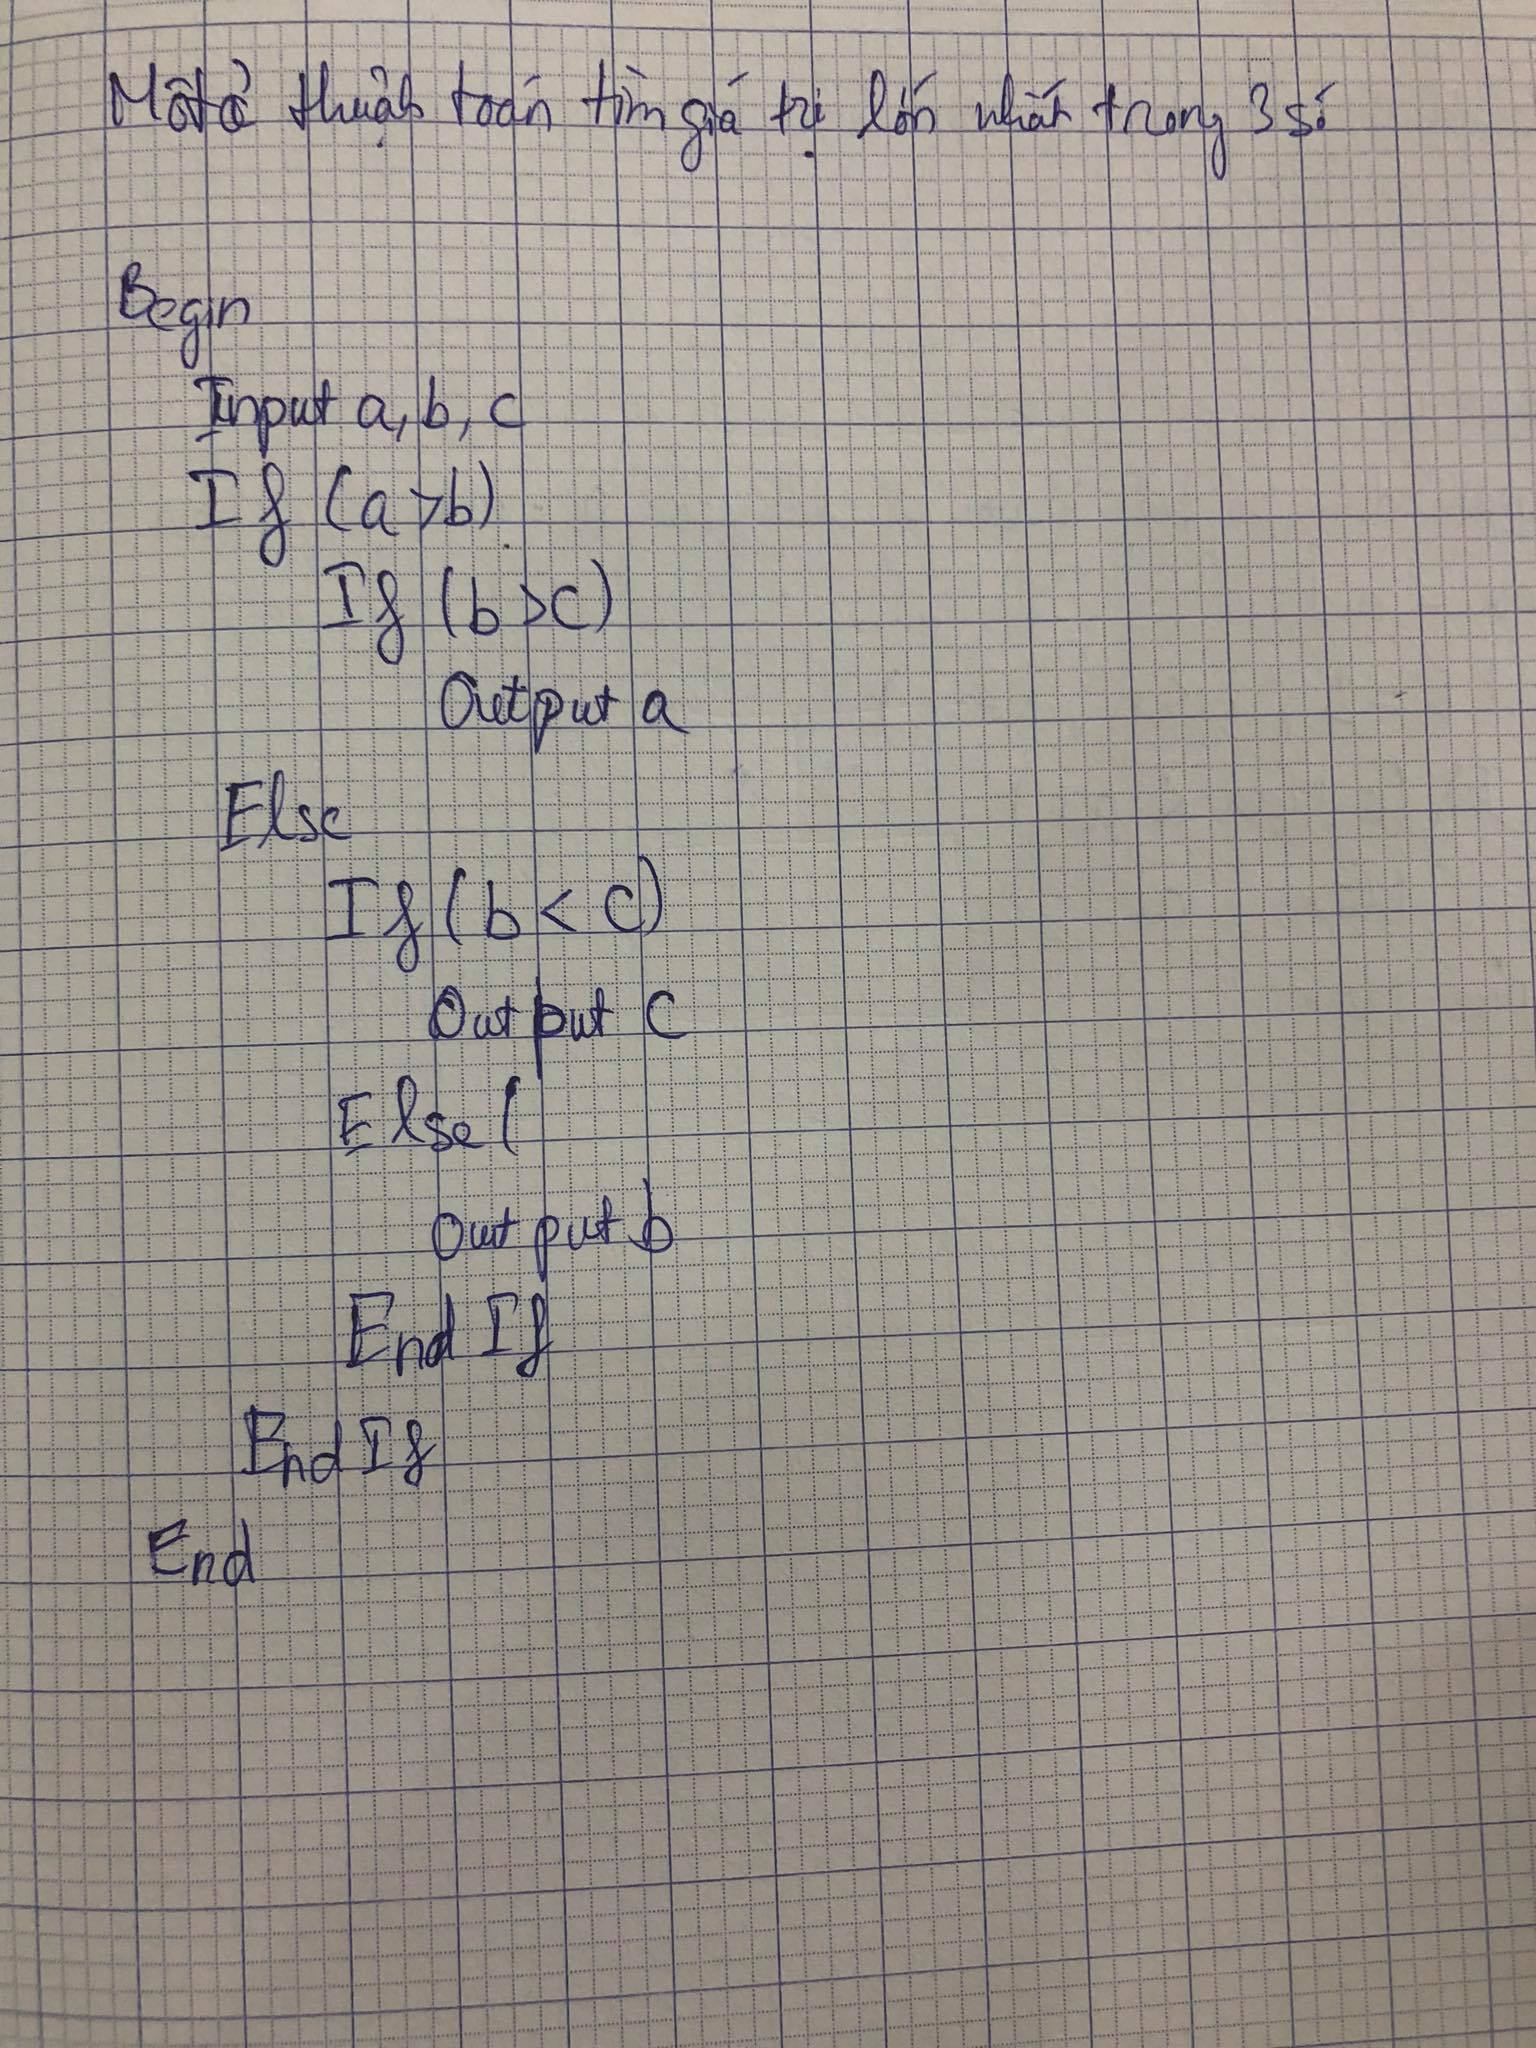 Mô tả thuật toán tìm giá trị lớn nhất trong 3 số
Begin
Input a, b, c
If (a > b)
If (b > c)
Output a
Else
If (b < c)
Output c
Else (
Output b
End If
End If
End